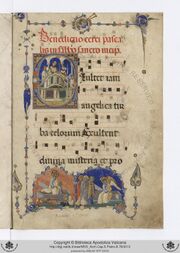 Benedictio cerei pasca
lis in sabbō sancto incip.
Xultet iam
angelica tur
ba celorum Exultent
divina misteria et pro
Copyright © Biblioteca Apostolica Vaticana